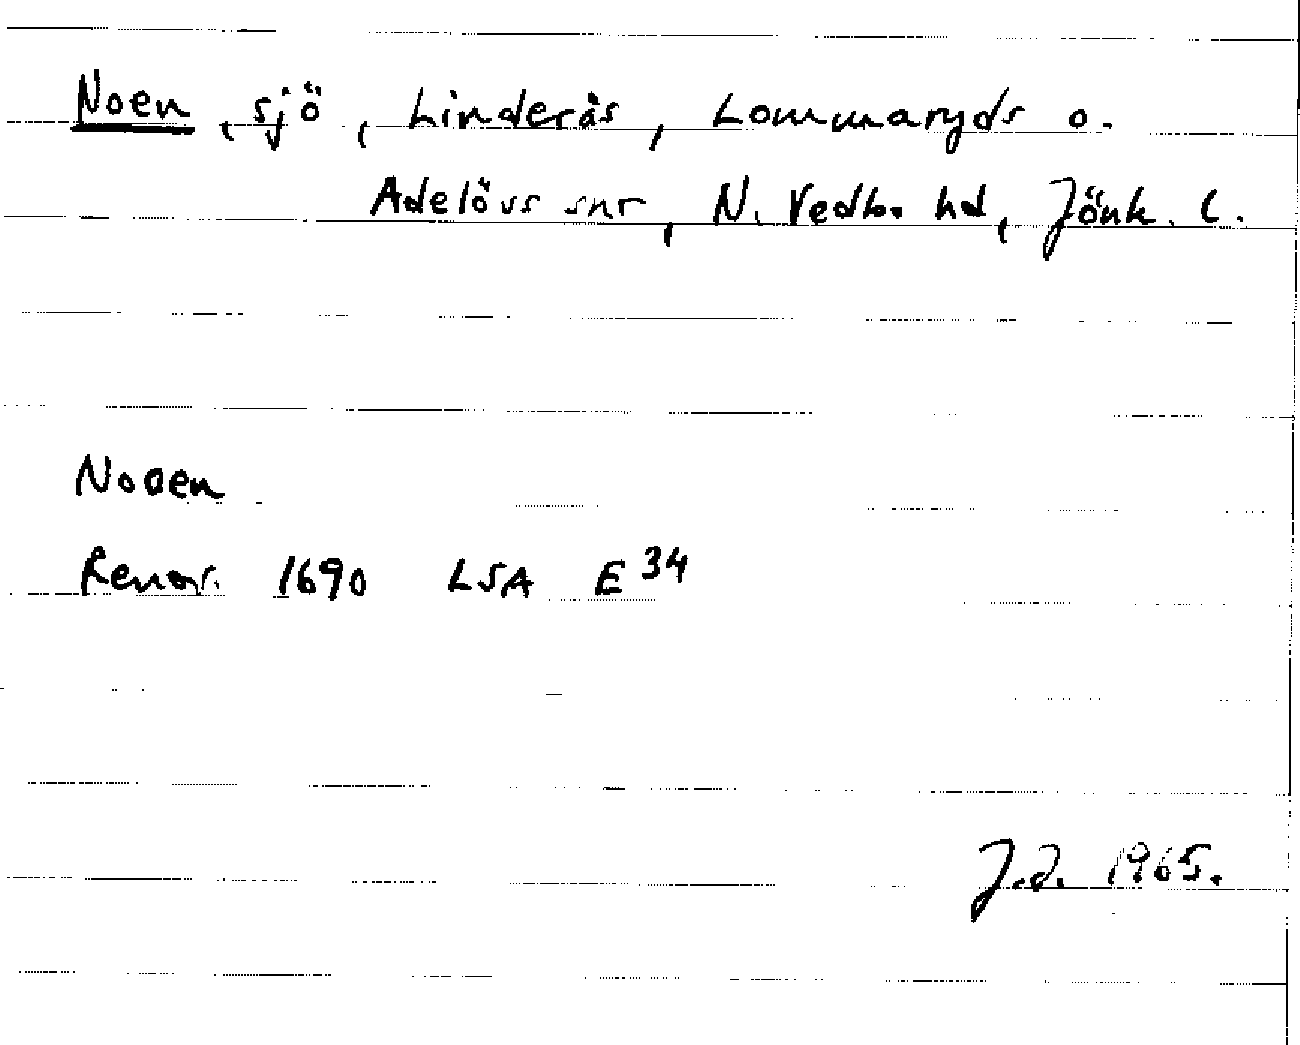 Noen, sjö, Linderås, Lommaryds o.
Adelövs snr, N. Vedbo hd, Jönk. l.
Nooen
Renov. 1690 LSA E 34
J.d. 1965.